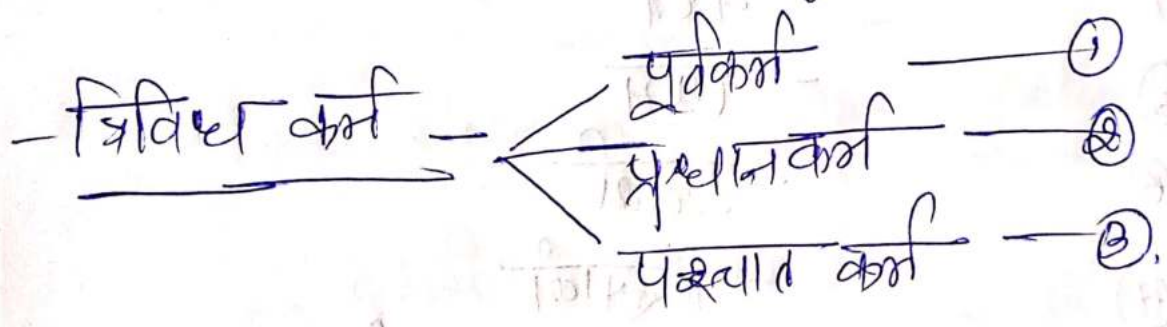 पूर्वकर्म — ①
- त्रिविध कर्म -
प्रधान कर्म — ②
पश्चात कर्म — ③.